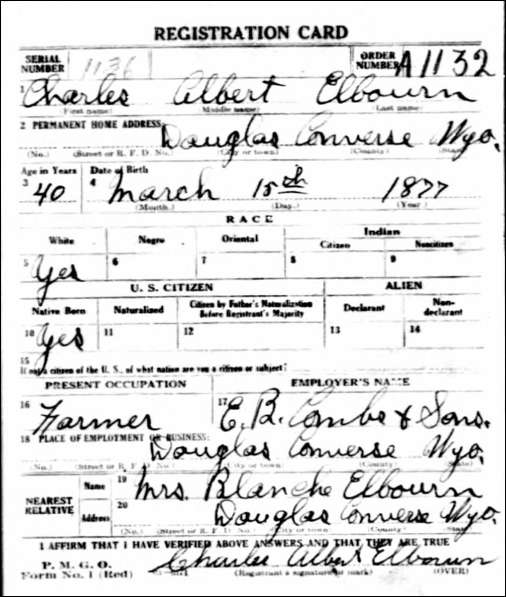 REGISTRATION CARD
SERIAL NUMBER 1136 ORDER NUMBER A1132
1 Charles Albert Elbourn
(First name) (Middle name) (Last name)
2 PERMANENT HOME ADDRESS: Douglas Converse Wyo.
(No.) (Street or R. F. D. No.) (City or town) (County) (State)
Age in Years Date of Birth
3 40 4 March 15th 1877
(Month.) (Day.) (Year.)
RACE
White Negro Oriental Indian
Citizen Noncitizen
5 Yes 6 7 8 9
U. S. CITIZEN ALIEN
Native Born Naturalized Citizen by Father's Naturalization Before Registrant's Majority Declarant Non-declarant
10 Yes 11 12 13 14
15 If not a citizen of the U. S., of what nation are you a citizen or subject?
PRESENT OCCUPATION EMPLOYER'S NAME
16 Farmer 17 E. B. Combs & Sons.
18 PLACE OF EMPLOYMENT OR BUSINESS: Douglas Converse Wyo.
(No.) (Street or R. F. D. No.) (City or town) (County) (State)
NEAREST RELATIVE Name 19 Mrs. Blanche Elbourn
Address 20 Douglas Converse Wyo.
(No.) (Street or R. F. D. No.) (City or town) (County) (State)
I AFFIRM THAT I HAVE VERIFIED ABOVE ANSWERS AND THAT THEY ARE TRUE
P. M. G. O.
Form No. 1 (Red) Charles Albert Elbourn
(Registrant's signature or mark) (OVER)